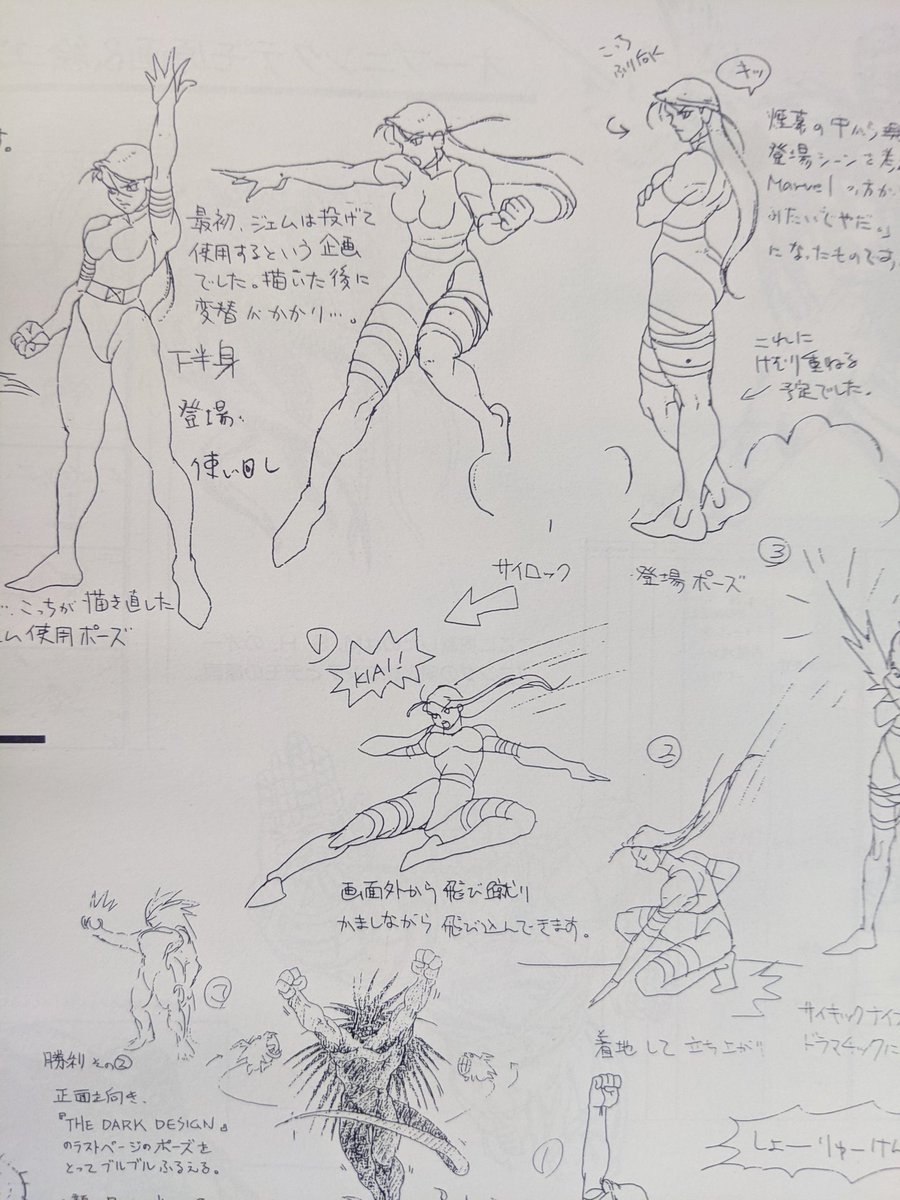 す。
こっち
ふり向く
キッ
煙幕の中から
登場シーンを考
Marvelの方が
みたいじゃだ。」
になったものです
最初、ジェムは投げて
使用するという企画
でした。描いた後に
変替がかかり…。
下半身
登場
使い回し
これに
けむり重ねる
予定でした。
…こっちが描き直した
ム使用ポーズ
登場ポーズ
サイロック
①
KIAI!
画面外から飛び蹴り
かましながら飛び込んできます。
②
着地して立ち上がり
③
サイキックナイフ
ドラマチックに
勝利 その②
正面を向き、
『THE DARK DESIGN』
のラストページのポーズを
とってブルブルふるえる。
①
しょーりゅーけん